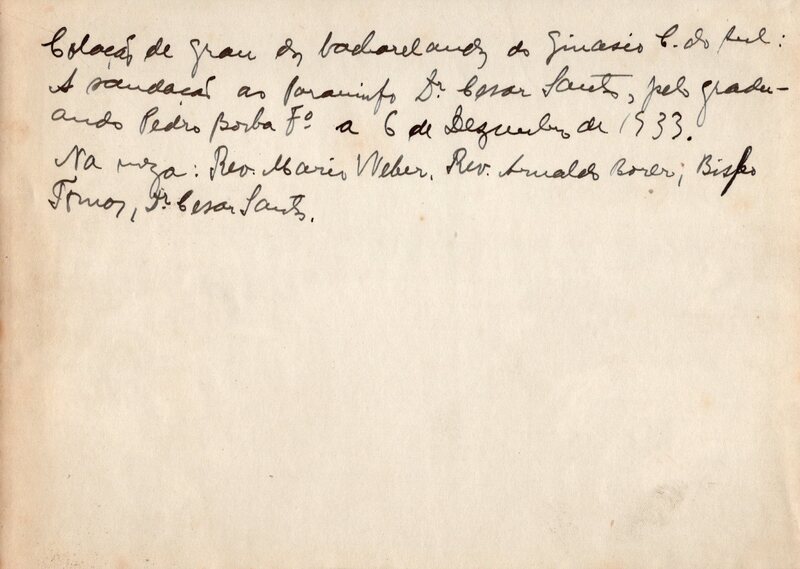 Colação de grau dos bacharelandos do Ginasio C. do Sul:
A saudação ao paraninfo Dr. Cesar Santos, pelo gradu-
ando Pedro Borba Fº a 6 de Dezembro de 1933.
Na meza: Rev. Mario Weber, Rev. Arnaldo Borer, Bispo
Tomas, Dr. Cesar Santos.